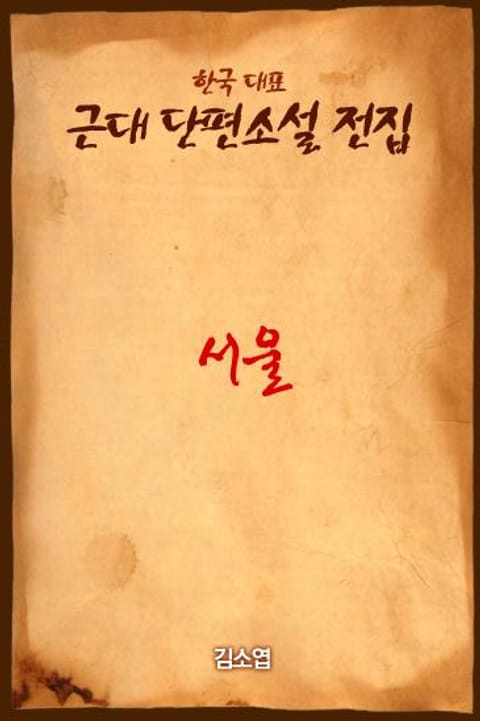 한국 대표
근대 단편소설 전집
서울
김소엽